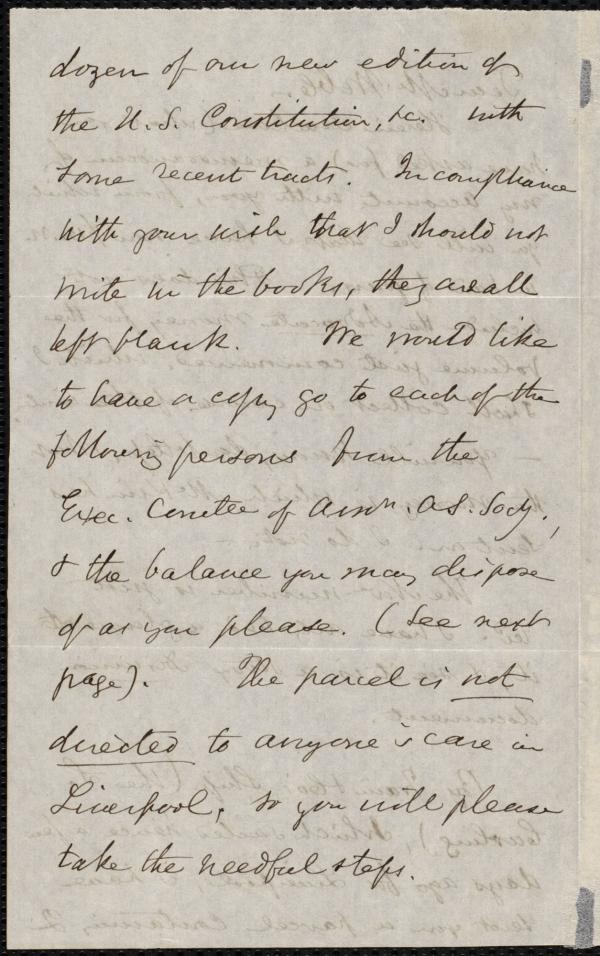 dozen of our new edition of
the U. S. Constitution, &c. with
some recent tracts. In compliance
with your wish that I should not
write in the books, they are all
left blank. We would like
to have a copy go to each of the
following persons from the
Exec. Comtee of Amn. A. S. Socy.,
& the balance you may dispose
of as you please. (See next
page). The parcel is not
directed to anyone's care in
Liverpool, so you will please
take the needful steps.